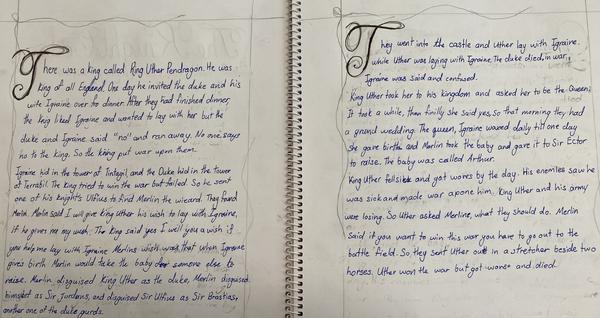 There was a King called King Uther Pendragon. He was
King of all England. One day he invited the duke and his
wife Igraine over to dinner. After they had finished dinner,
the King liked Igraine and wanted to lay with her but the
duke and Igraine said "no" and ran away. No one says
no to the King. So the King put war upon them.
Igraine hid in the tower of Tintagil and the Duke hid in the Tower
of Terrabil. The King tried to win the war but failed. So he sent
one of his knights Ulfius to find Merlin the wizard. They found
Merlin. Merlin said I will give King Uther his wish to lay with Igraine,
if he gives me my wish. The King said yes I will you a wish if
you help me lay with Igraine Merlins wish was that when Igraine
gives birth Merlin would take the baby someone else to
raise. Merlin disguised King Uther as the duke, Merlin disguised
himself as Sir Jordans, and disguised Sir Ulfius as Sir Brastias,
another one of the duke gurds.
They went into the castle and Uther lay with Igraine.
while Uther was laying with Igraine, The duke died in war,
Igraine was said and confused.
King Uther took her to his kingdom and asked her to be the Queen,
It took a while, than finilly she said yes, so that morning they had
a grand wedding. The queen, Igraine waned daily till one day
She gave birth and Merlin took the baby and gave it to Sir Ector
to raise. The baby was called Arthur.
King Uther fell sick and got wores by the day. His enemies saw he
was sick and made war apone him. King Uther and his army
were losing. So Uther asked Merline, what they should do. Merlin
said if you want to win this war you have to go out to the
battle field. So they sent Uther out in a stretcher beside two
horses. Uther won the war but got worse and died.